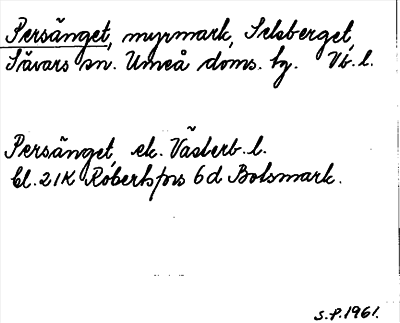 Persänget, myrmark, Selsberget,
Sävars sn. Umeå doms. hg. Vb. l.
Persänget, ek. Västerb. l.
bl. 21K Robertsfors 6d Botsmark.
S.P. 1961.